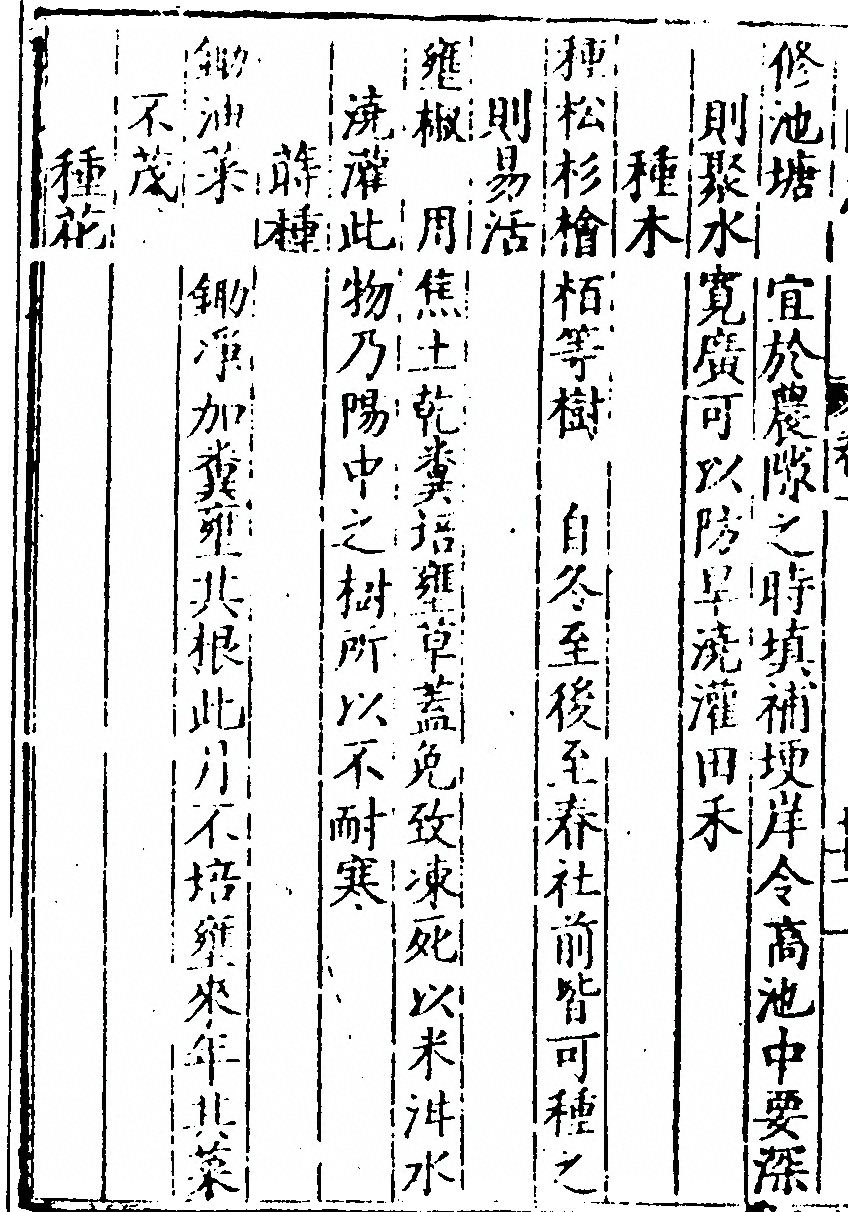 修池塘 宜於農隙之時填補埂岸令高池中要深
則聚水寛廣可以防旱澆灌田禾
種木
種松杉檜栢等樹 自冬至後至春社前皆可種之
則易活
壅椒 用焦土乾糞培壅草蓋免致凍死以米泔水
澆灌此物乃陽中之樹所以不耐寒
蒔種
鋤油菜 鋤凈加糞壅其根此月不培壅來年其菜
不茂
種花